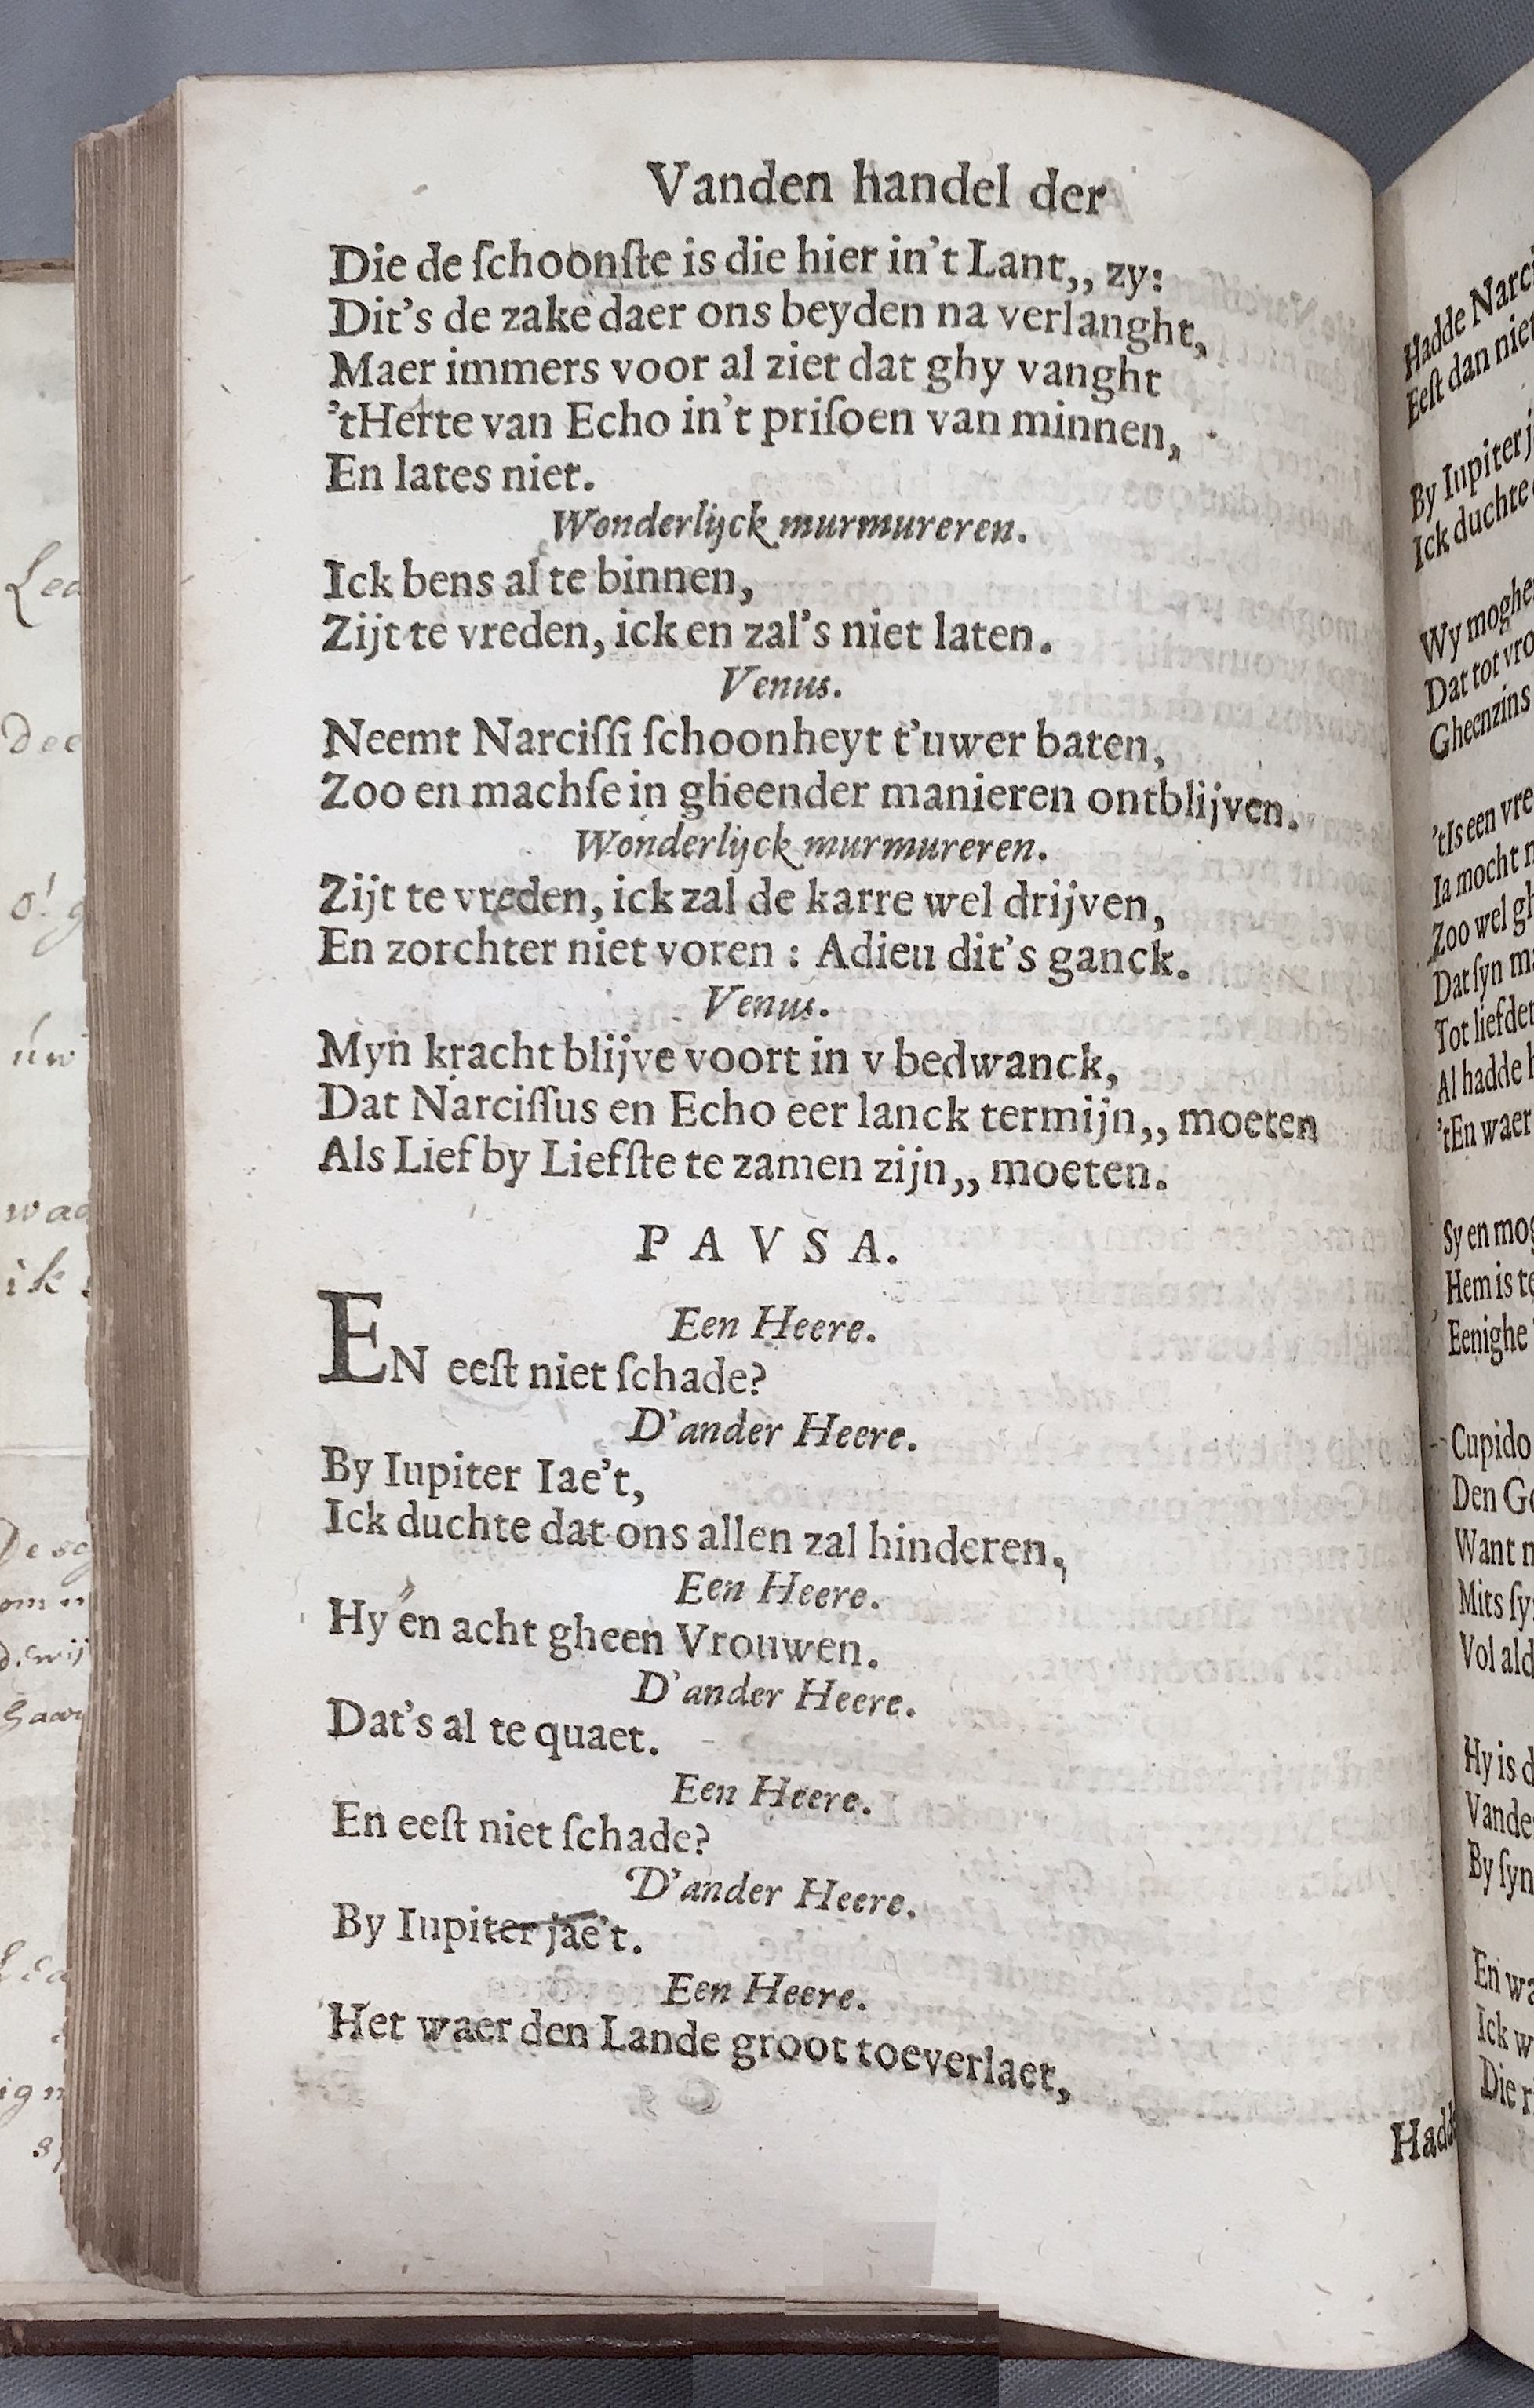 Vanden handel der
Die de ſchoonſte is die hier in't Lant,, zy:
Dit's de zake daer ons beyden na verlanght,
Maer immers voor al ziet dat ghy vanght
'tHerte van Echo in't priſoen van minnen,
En lates niet.
Wonderlijck murmureren.
Ick bens al te binnen,
Zijt te vreden, ick en zal's niet laten.
Venus.
Neemt Narciſſi ſchoonheyt t'uwer baten,
Zoo en machſe in gheender manieren ontblijven.
Wonderlijck murmureren.
Zijt te vreden, ick zal de karre wel drijven,
En zorchter niet voren : Adieu dit's ganck.
Venus.
Myn kracht blijve voort in v bedwanck,
Dat Narciſſus en Echo eer lanck termijn,, moeten
Als Lief by Liefſte te zamen zijn,, moeten.
PAVSA.
Een Heere.
EN eeſt niet ſchade?
D'ander Heere.
By Iupiter Iae't,
Ick duchte dat ons allen zal hinderen,
Een Heere.
Hy en acht gheen Vrouwen.
D'ander Heere.
Dat's al te quaet.
Een Heere.
En eeſt niet ſchade?
D'ander Heere.
By Iupiter jae't.
Een Heere.
Het waer den Lande groot toeverlaet,
Hadde
Hadde Narci
Eeſt dan niet
By Iupiter j
Ick duchte
Wy moghe
Dat tot vro
Gheenzins
'tIs een vre
Ia mocht
Zoo wel gh
Dat ſyn ma
Tot liefden
Al hadde h
'tEn waer
Sy en mog
Hem is te
Eenighe
Cupido
Den Go
Want
Mits ſy
Vol ald
Hy is d
Vande
By ſyn
En wa
Ick w
Die r